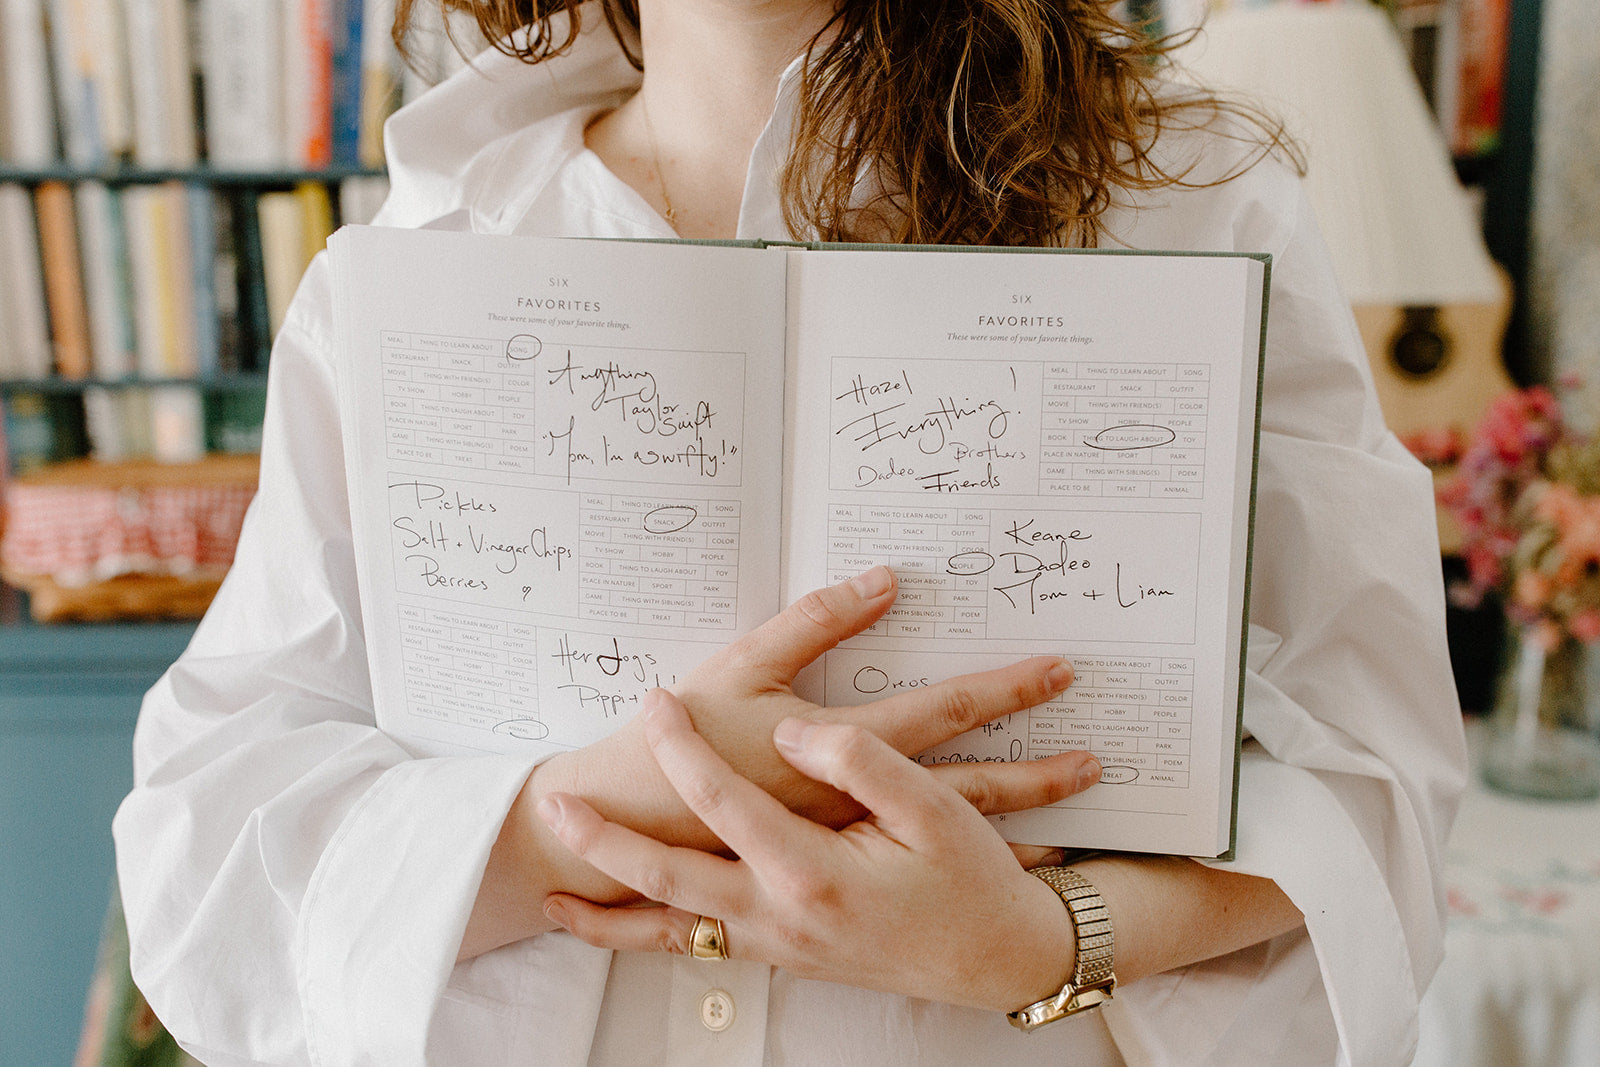 SIX
FAVORITES
These were some of your favorite things.
MEAL THING TO LEARN ABOUT SONG
RESTAURANT SNACK OUTFIT
MOVIE THING WITH FRIEND(S) COLOR
TV SHOW HOBBY PEOPLE
BOOK THING TO LAUGH ABOUT TOY
PLACE IN NATURE SPORT PARK
GAME THING WITH SIBLING(S) POEM
PLACE TO BE TREAT ANIMAL
Anything
Taylor
Swift
"Mom, I'm a swifty!"
Pickles
Salt + Vinegar Chips
Berries
MEAL THING TO LEARN ABOUT SONG
RESTAURANT SNACK OUTFIT
MOVIE THING WITH FRIEND(S) COLOR
TV SHOW HOBBY PEOPLE
BOOK THING TO LAUGH ABOUT TOY
PLACE IN NATURE SPORT PARK
GAME THING WITH SIBLING(S) POEM
PLACE TO BE TREAT ANIMAL
MEAL THING TO LEARN ABOUT SONG
RESTAURANT SNACK OUTFIT
MOVIE THING WITH FRIEND(S) COLOR
TV SHOW HOBBY PEOPLE
BOOK THING TO LAUGH ABOUT TOY
PLACE IN NATURE SPORT PARK
GAME THING WITH SIBLING(S) POEM
PLACE TO BE TREAT ANIMAL
Her dogs
Pippi +
SIX
FAVORITES
These were some of your favorite things.
Hazel !
Everything!
Brothers
Dadeo
Friends
MEAL THING TO LEARN ABOUT SONG
RESTAURANT SNACK OUTFIT
MOVIE THING WITH FRIEND(S) COLOR
TV SHOW HOBBY PEOPLE
BOOK THING TO LAUGH ABOUT TOY
PLACE IN NATURE SPORT PARK
GAME THING WITH SIBLING(S) POEM
PLACE TO BE TREAT ANIMAL
MEAL THING TO LEARN ABOUT SONG
RESTAURANT SNACK OUTFIT
MOVIE THING WITH FRIEND(S) COLOR
TV SHOW HOBBY PEOPLE
BOOK LAUGH ABOUT TOY
SPORT PARK
WITH SIBLING(S) POEM
BE TREAT ANIMAL
Keane
Dadeo
Mom + Liam
Oreos
HA!
in general
THING TO LEARN ABOUT SONG
SNACK OUTFIT
THING WITH FRIEND(S) COLOR
TV SHOW HOBBY PEOPLE
BOOK THING TO LAUGH ABOUT TOY
PLACE IN NATURE SPORT PARK
WITH SIBLING(S) POEM
TREAT ANIMAL
91